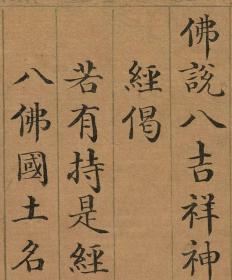 佛說八吉祥神
經偈
若有持是經
八佛國土名